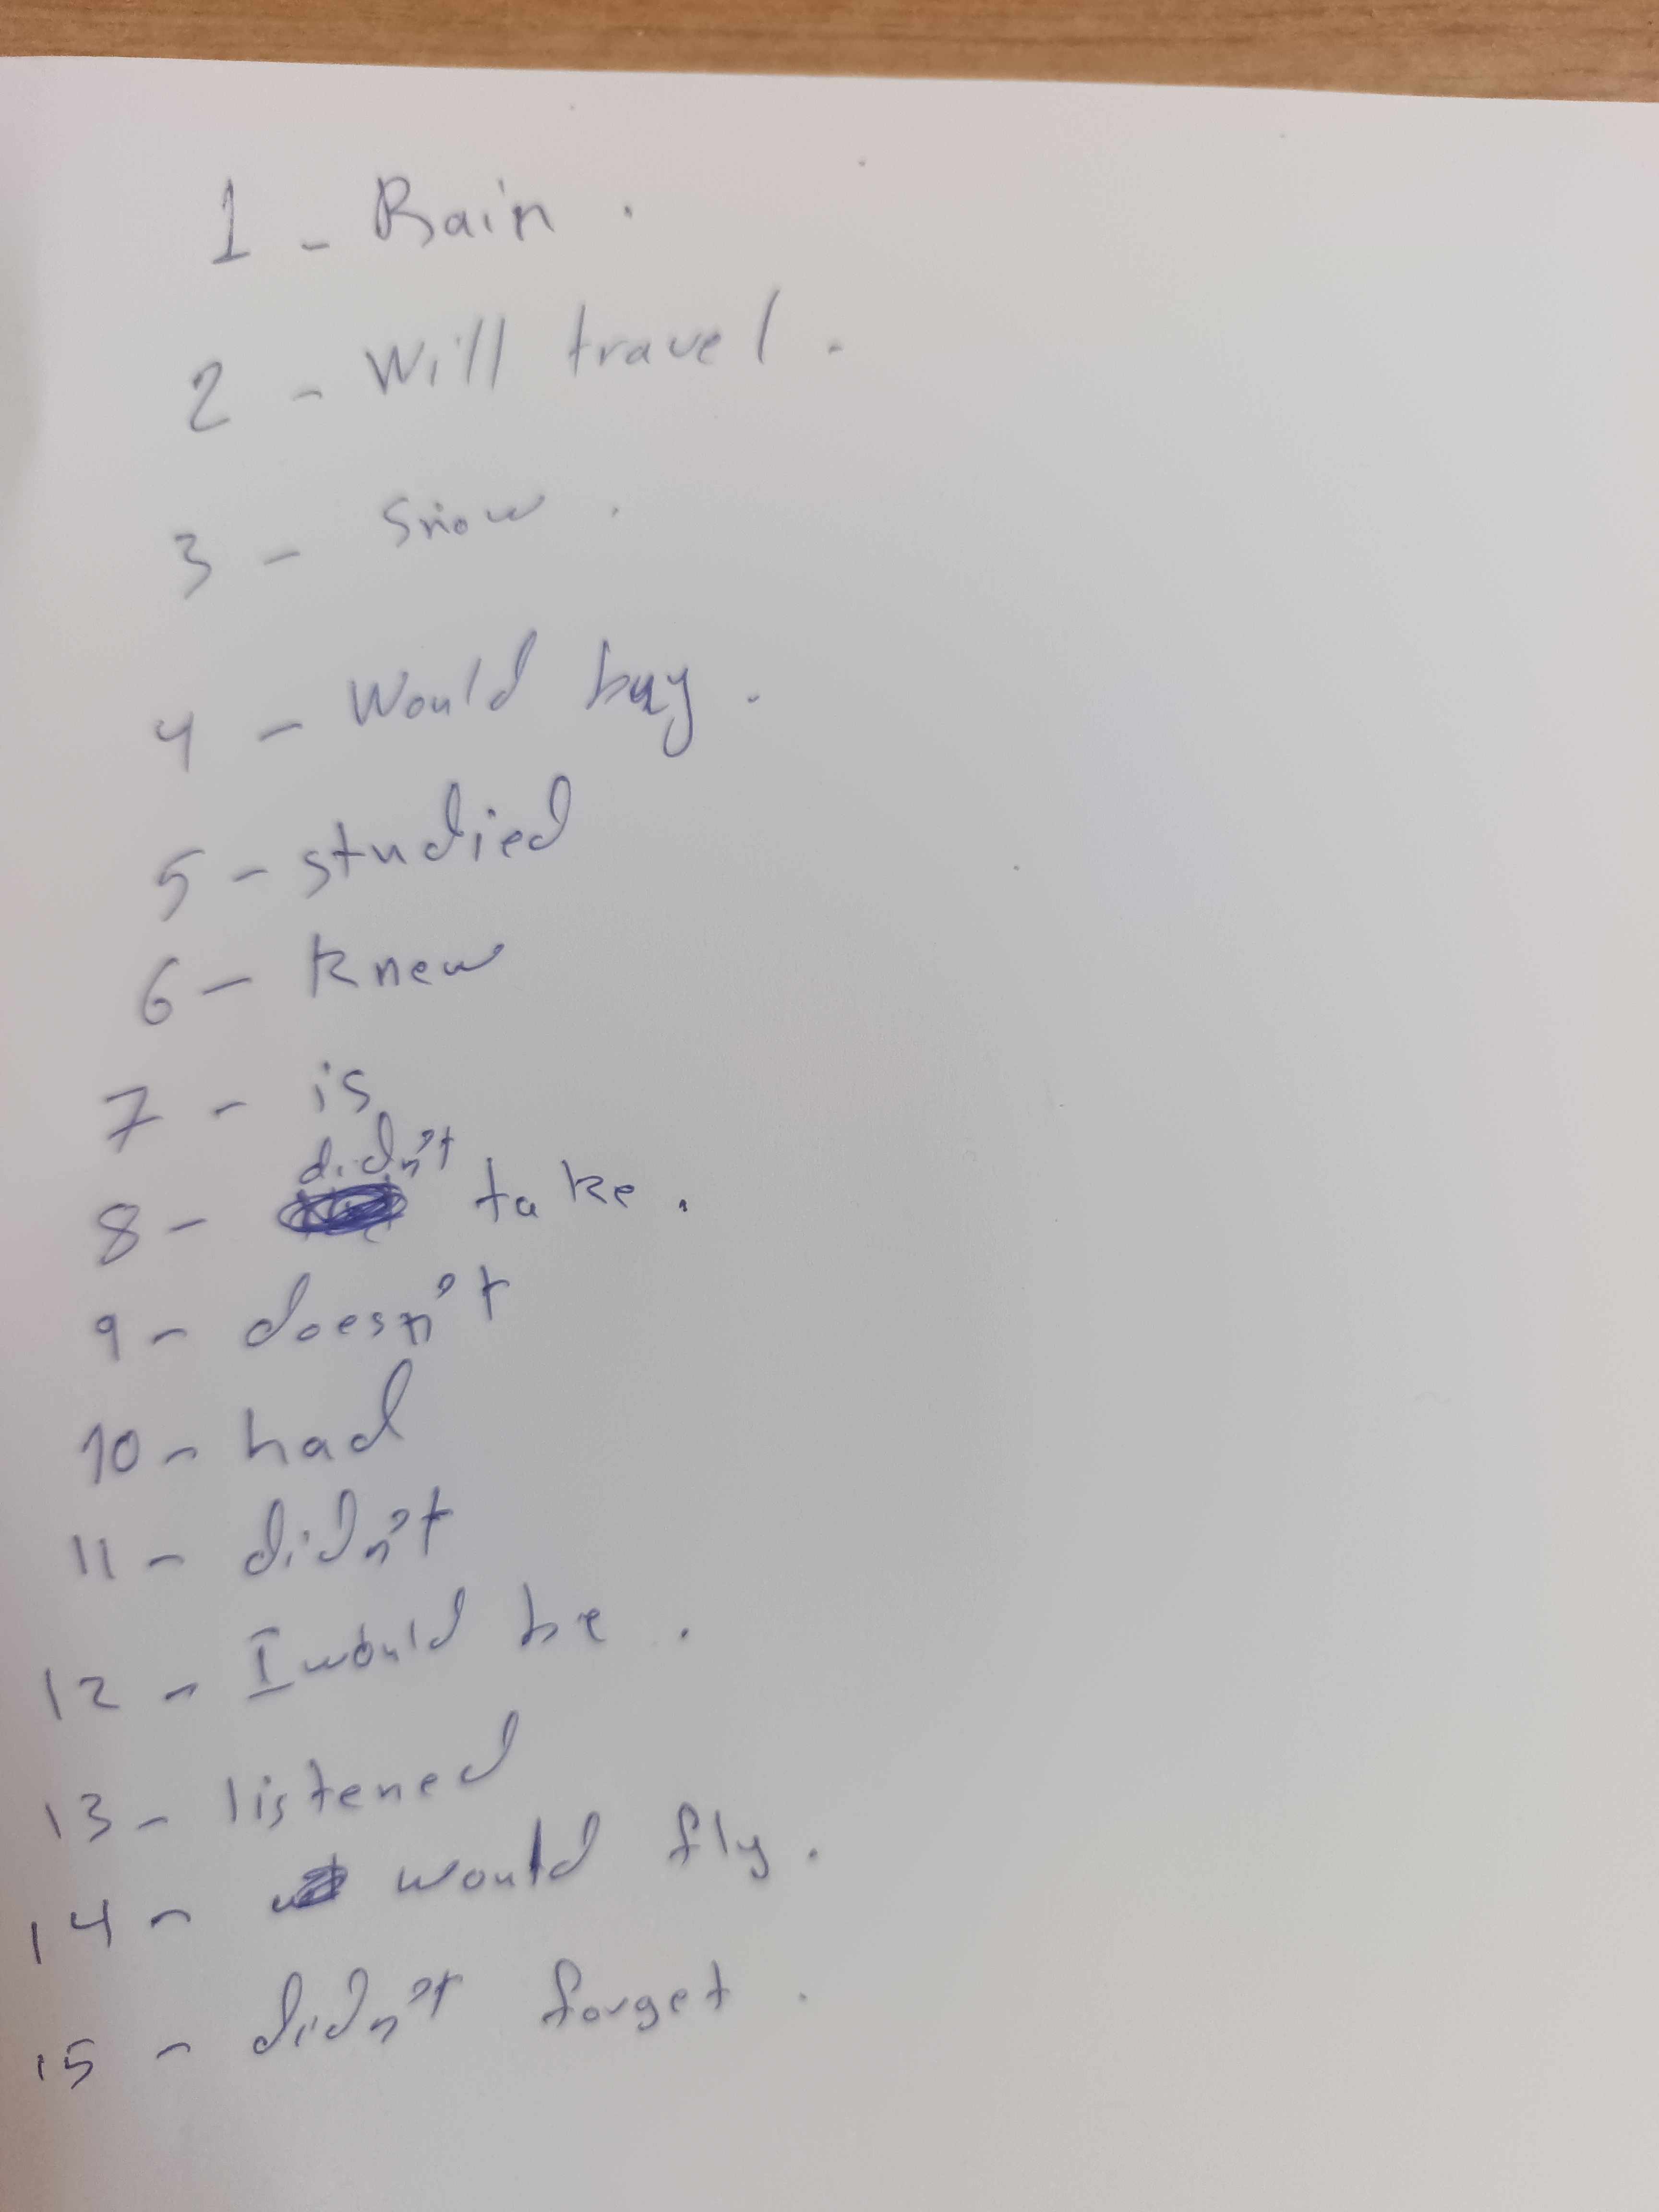 1 - Rain .
2 - Will travel .
3 - Snow .
4 - Would buy .
5 - studied
6 - Knew
7 - is
8 - didn't take .
9 - doesn't
10 - had
11 - didn't
12 - I would be .
13 - listened
14 - would fly .
15 - didn't forget .